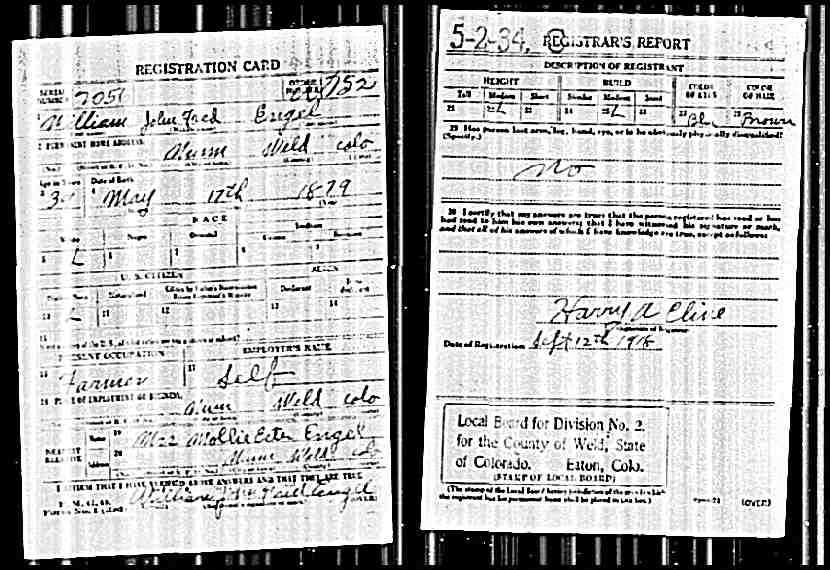 REGISTRATION CARD
SERIAL NUMBER 7056 ORDER NUMBER 752
1 William John Fred Engel
2 PERMANENT HOME ADDRESS:
Nunn Weld Colo
Age in Years Date of Birth
39 May 17th 1879
RACE
White Negro Oriental Indian
U. S. CITIZEN ALIEN
Native Born Naturalized Citizen by Father's Naturalization Before Registrant's Majority Declarant Non-declarant
10 11 12 13 14
15
PRESENT OCCUPATION EMPLOYER'S NAME
16 Farmer 17 Self
18 PLACE OF EMPLOYMENT OR BUSINESS:
Nunn Weld Colo
NEAREST RELATIVE Name 19 Mrs Mollie Engel
Address 20 Nunn Weld Colo
I AFFIRM THAT I HAVE VERIFIED ABOVE ANSWERS AND THAT THEY ARE TRUE
William John Fred Engel
(OVER)
5-2-34. C REGISTRAR'S REPORT
DESCRIPTION OF REGISTRANT
HEIGHT BUILD COLOR OF EYES COLOR OF HAIR
Tall Medium Short Slender Medium Stout
21 22 23 24 25 26 27 Bl 28 Brown
29 Has person lost arm, leg, hand, eye, or is he obviously physically disqualified?
(Specify.)
no
30 I certify that my answers are true; that the person registered has read or has
had read to him his own answers; that I have witnessed his signature or mark,
and that all of his answers of which I have knowledge are true, except as follows:
Harry A Cline
Date of Registration Sept 12th 1918
Local Board for Division No. 2.
for the County of Weld, State
of Colorado. Eaton, Colo.
(STAMP OF LOCAL BOARD)
(The stamp of the Local Board having jurisdiction of the area in which
the registrant has his permanent home shall be placed in this box.)
(OVER)